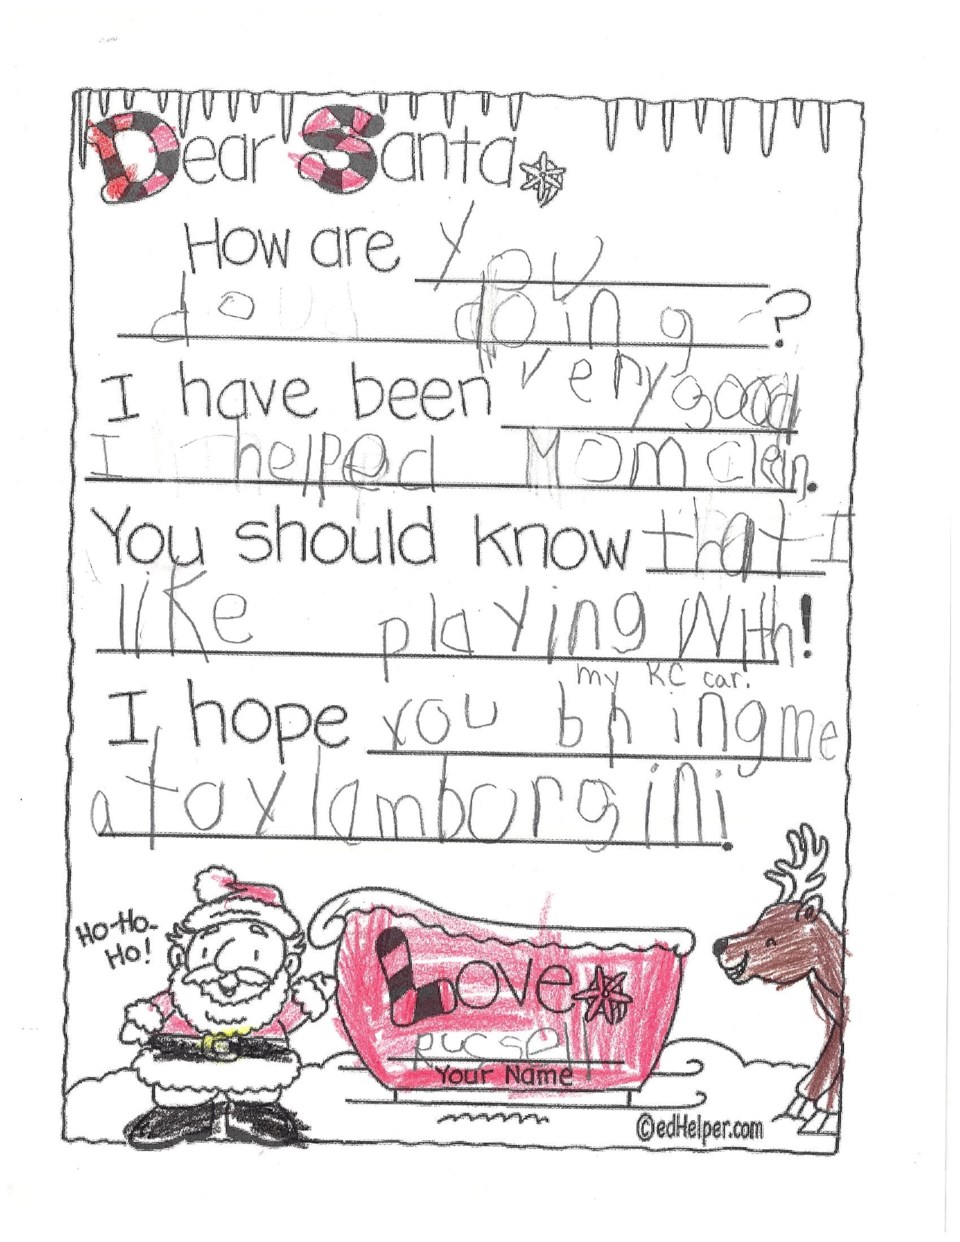 Dear Santa
How are you
do doing ?
I have been very good
I helped Mom clean.
You should know that I
like playing with!
my KC car.
I hope you bring me
a toy lamborgini.
Ho-Ho-
Ho!
Love
Rucsell
Your Name
©edHelper.com